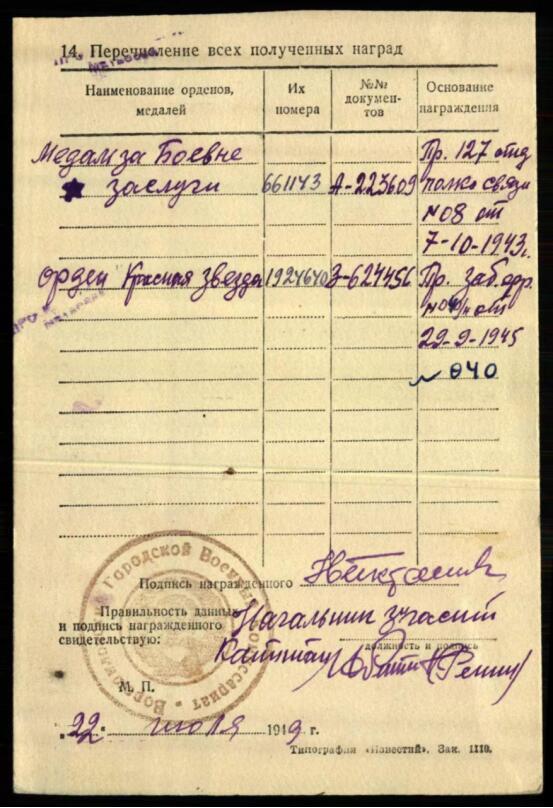 14. Перечисление всех полученных наград
Наименование орденов, медалей
Их номера
№№ докумен-тов
Основание награждения
Медаль за Боевые
заслуги 661143 А-223609
Пр. 127 отд
полка связи
№08 от
7-10-1943г.
Орден Красная Звезда 1924640 З-624456
Пр. заб.
от
29-9-1945
№ 040
Подпись награжденного
Правильность данных
и подпись награжденного
свидетельствую:
Начальник 3 части
Капитан
должность и подпись
Городской Военный Комиссариат
М. П.
22 июля 1949 г.
Типография «Известий». Зак. 1110.